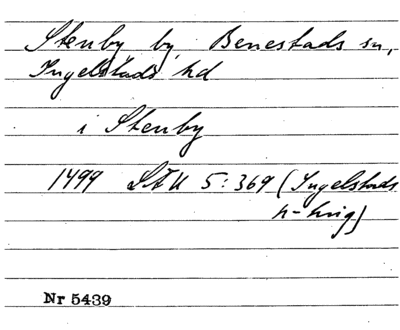 Stenby by, Benestads sn,
Ingelstads hd
i Stenby
1499 LÄU 5:369 (Ingelstads
h-ting)
Nr 5439